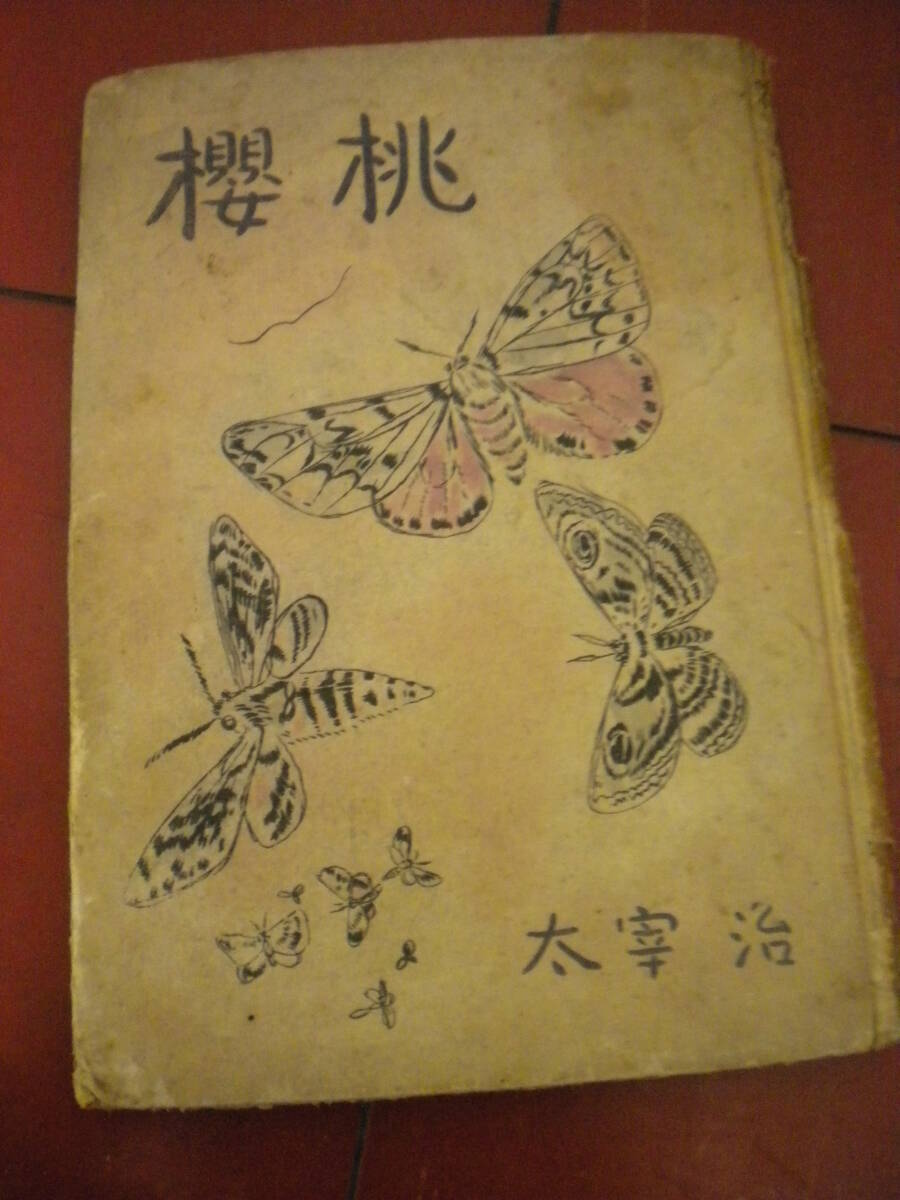 櫻桃
太宰治